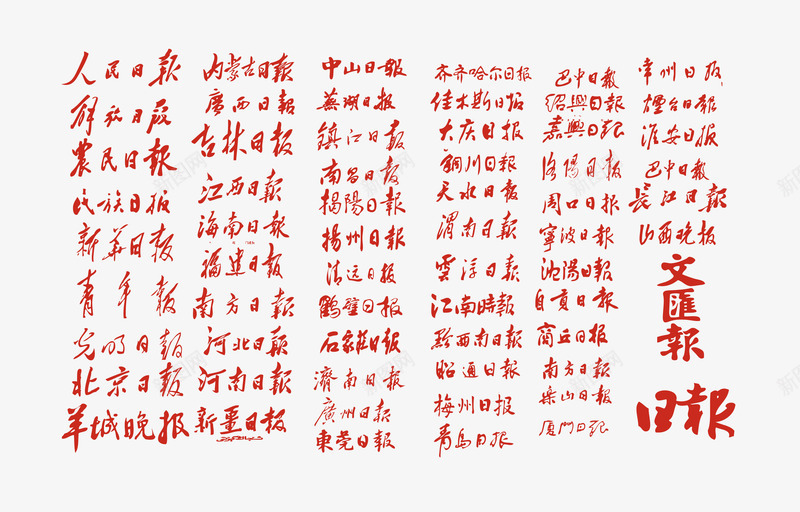 人民日報
解放日报
農民日報
民族日报
新华日报
青年報
光明日報
北京日報
羊城晚报
内蒙古日報
廣西日報
吉林日報
江西日報
海南日報
福建日報
南方日報
河北日報
河南日報
新疆日报
中山日報
蕪湖日报
鎮江日報
南昌日報
揭陽日報
揚州日報
清远日报
鶴壁日报
石家莊日報
濟南日報
廣州日報
東莞日報
齐齐哈尔日報
佳木斯日报
大庆日报
銅川日報
天水日報
渭南日報
雲浮日報
江南時報
黔西南日報
昭通日報
梅州日报
青岛日报
巴中日報
紹興日報
嘉興日報
洛陽日报
周口日报
寧波日報
沈陽日報
自貢日報
商丘日报
南方日報
乐山日報
厦門日報
常州日报
煙台日報
淮安日报
巴中日報
長江日報
山西晚报
文
匯
報
日報